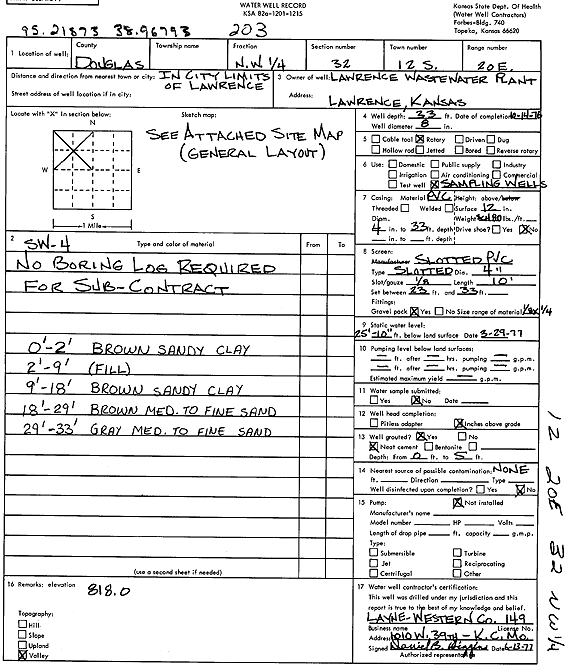 WATER WELL RECORD
KSA 82a-1201-1215
Kansas State Dept. Of Health
(Water Well Contractors)
Forbes-Bldg. 740
Topeka, Kansas 66620
95.21873 38.96793 203
1 Location of well: County DOUGLAS Township name Fraction N.W 1/4 Section number 32 Town number 12 S. Range number 20 E.
Distance and direction from nearest town or city: IN CITY LIMITS OF LAWRENCE
Street address of well location if in city:
3 Owner of well: LAWRENCE WASTEWATER PLANT
Address: LAWRENCE, KANSAS
Locate with "X" in section below:
N
W E
S
1 Mile
Sketch map:
SEE ATTACHED SITE MAP
(GENERAL LAYOUT)
4 Well depth: 33 ft. Date of completion 10-14-76
Well diameter 8 in.
5 Cable tool X Rotary Driven Dug
Hollow rod Jetted Bored Reverse rotary
6 Use: Domestic Public supply Industry
Irrigation Air conditioning Commercial
Test well X SAMPLING WELLS
7 Casing: Material PVC Height: above/below
Threaded Welded Surface 12 in.
Diam. Weight SCH.80 lbs./ft.
4 in. to 33 ft. depth Drive shoe? Yes X No
in. to ft. depth
2 SW-4 Type and color of material From To
NO BORING LOG REQUIRED
FOR SUB-CONTRACT
0'-2' BROWN SANDY CLAY
2'-9' (FILL)
9'-18' BROWN SANDY CLAY
18'-29' BROWN MED. TO FINE SAND
29'-33' GRAY MED. TO FINE SAND
(use a second sheet if needed)
8 Screen:
Manufacturer SLOTTED PVC
Type SLOTTED Dia. 4"
Slot/gauze 1/8 Length 10'
Set between 23 ft. and 33 ft.
Fittings:
Gravel pack X Yes No Size range of material 1/8 x 1/4
9 Static water level:
25'-10" ft. below land surface Date 3-29-77
10 Pumping level below land surfaces:
ft. after hrs. pumping g.p.m.
ft. after hrs. pumping g.p.m.
Estimated maximum yield g.p.m.
11 Water sample submitted:
Yes X No Date
12 Well head completion:
Pitless adapter X Inches above grade
13 Well grouted? X Yes No
X Neat cement Bentonite
Depth: From 0 ft. to 5 ft.
14 Nearest source of possible contamination: NONE
ft. Direction Type
Well disinfected upon completion? Yes X No
15 Pump: X Not installed
Manufacturer's name
Model number HP Volts
Length of drop pipe ft. capacity g.p.m.
Type:
Submersible Turbine
Jet Reciprocating
Centrifugal Other
16 Remarks: elevation 818.0
Topography:
Hill
Slope
Upland
X Valley
17 Water well contractor's certification:
This well was drilled under my jurisdiction and this
report is true to the best of my knowledge and belief.
LAYNE-WESTERN CO. 149
Business name License No.
Address 1010 W. 39th - K.C. MO.
Signed Daniel B. Date 6-13-77
Authorized representative
12 20E 32 NW 1/4